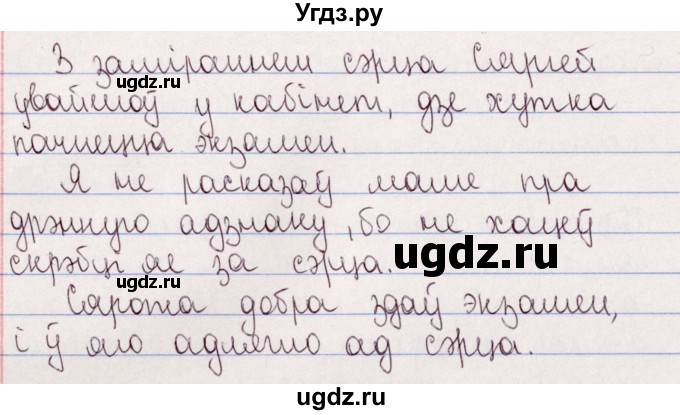 Угдз.ру
З заміраннем сэрца Сяргей
увайшоў у кабінет, дзе хутка
пачнецца экзамен.
Я не расказаў маме пра
дрэнную адзнаку, бо не хацеў
скрэбці яе за сэрца.
Сярожа добра здаў экзамен,
і ў яго адлягло ад сэрца.
ugdz.ru
ugdz.ru
ugdz.ru
ugdz.ru
ugdz.ru
ugdz.ru
ugdz.ru